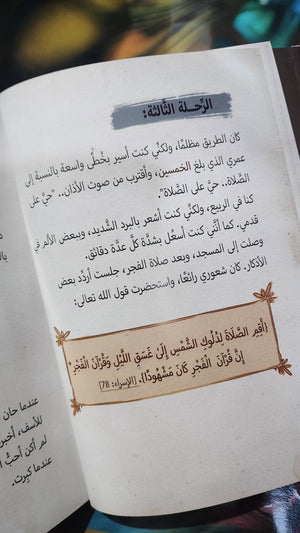 الرّحلة الثّالثة:
كان الطريق مظلمًا، ولكنّي كنت أسير بخُطًى واسعة بالنسبة إلى
عمري الذي بلغ الخمسين، وأقترب من صوت الأذان.. "حيَّ على
الصّلاة.. حيَّ على الصّلاة".
كنا في الربيع، ولكنّي كنت أشعر بالبرد الشّديد، وببعض الألم في
قدمي. كما أنّني كنت أسعُل بشدّة كلَّ عدّة دقائق.
وصلت إلى المسجد، وبعد صلاة الفجر، جلست أردّد بعض
الأذكار. كان شعوري رائعًا، واستحضرت قول الله تعالى:
{أَقِمِ الصَّلَاةَ لِدُلُوكِ الشَّمْسِ إِلَىٰ غَسَقِ اللَّيْلِ وَقُرْآنَ الْفَجْرِ
إِنَّ قُرْآنَ الْفَجْرِ كَانَ مَشْهُودًا}. [الإسراء: 78]
عندما حان
للأسف، أخبر
لم أكن أحبُّ ا
عندما كبرت.